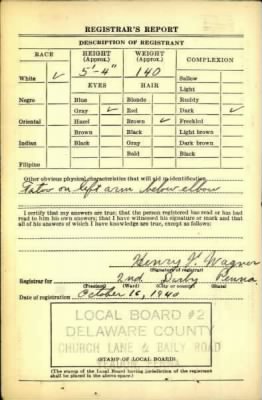 REGISTRAR'S REPORT
DESCRIPTION OF REGISTRANT
RACE HEIGHT (Approx.) WEIGHT (Approx.) COMPLEXION
White ✓ 5'-4" 140 Sallow
EYES HAIR Light
Negro Blue Blonde Ruddy
Gray ✓ Red Dark ✓
Oriental Hazel Brown ✓ Freckled
Brown Black Light brown
Indian Black Gray Dark brown
Bald Black
Filipino
Other obvious physical characteristics that will aid in identification
Tatoo on left arm below elbow
I certify that my answers are true; that the person registered has read or has had
read to him his own answers; that I have witnessed his signature or mark and that
all of his answers of which I have knowledge are true, except as follows:
Henry Wagner
(Signature of registrar)
Registrar for 2nd Darby Penna.
(Precinct) (Ward) (City or county) (State)
Date of registration October 16, 1940
LOCAL BOARD #2
DELAWARE COUNTY
CHURCH LANE & BAILY ROAD
PENNA.
(STAMP OF LOCAL BOARD)
(The stamp of the Local Board having jurisdiction of the registrant
shall be placed in the above space.)